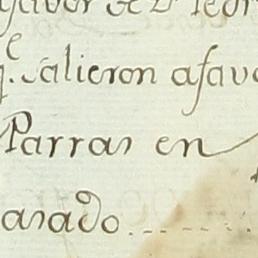 favor de Dⁿ Pedr
q.ᵉ salieron a favo
Parras en
asado....